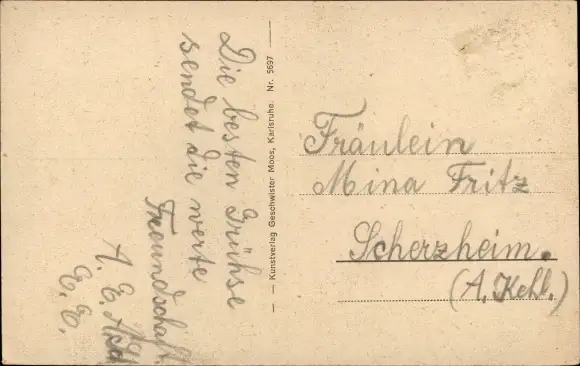 Die besten Grühse
sendet die werte
Freundschaft
A. E.
E. E.
— Kunstverlag Geschwister Moos, Karlsruhe. Nr. 5697 —
Fräulein
Mina Fritz
Scherzheim.
(A. Kehl.)